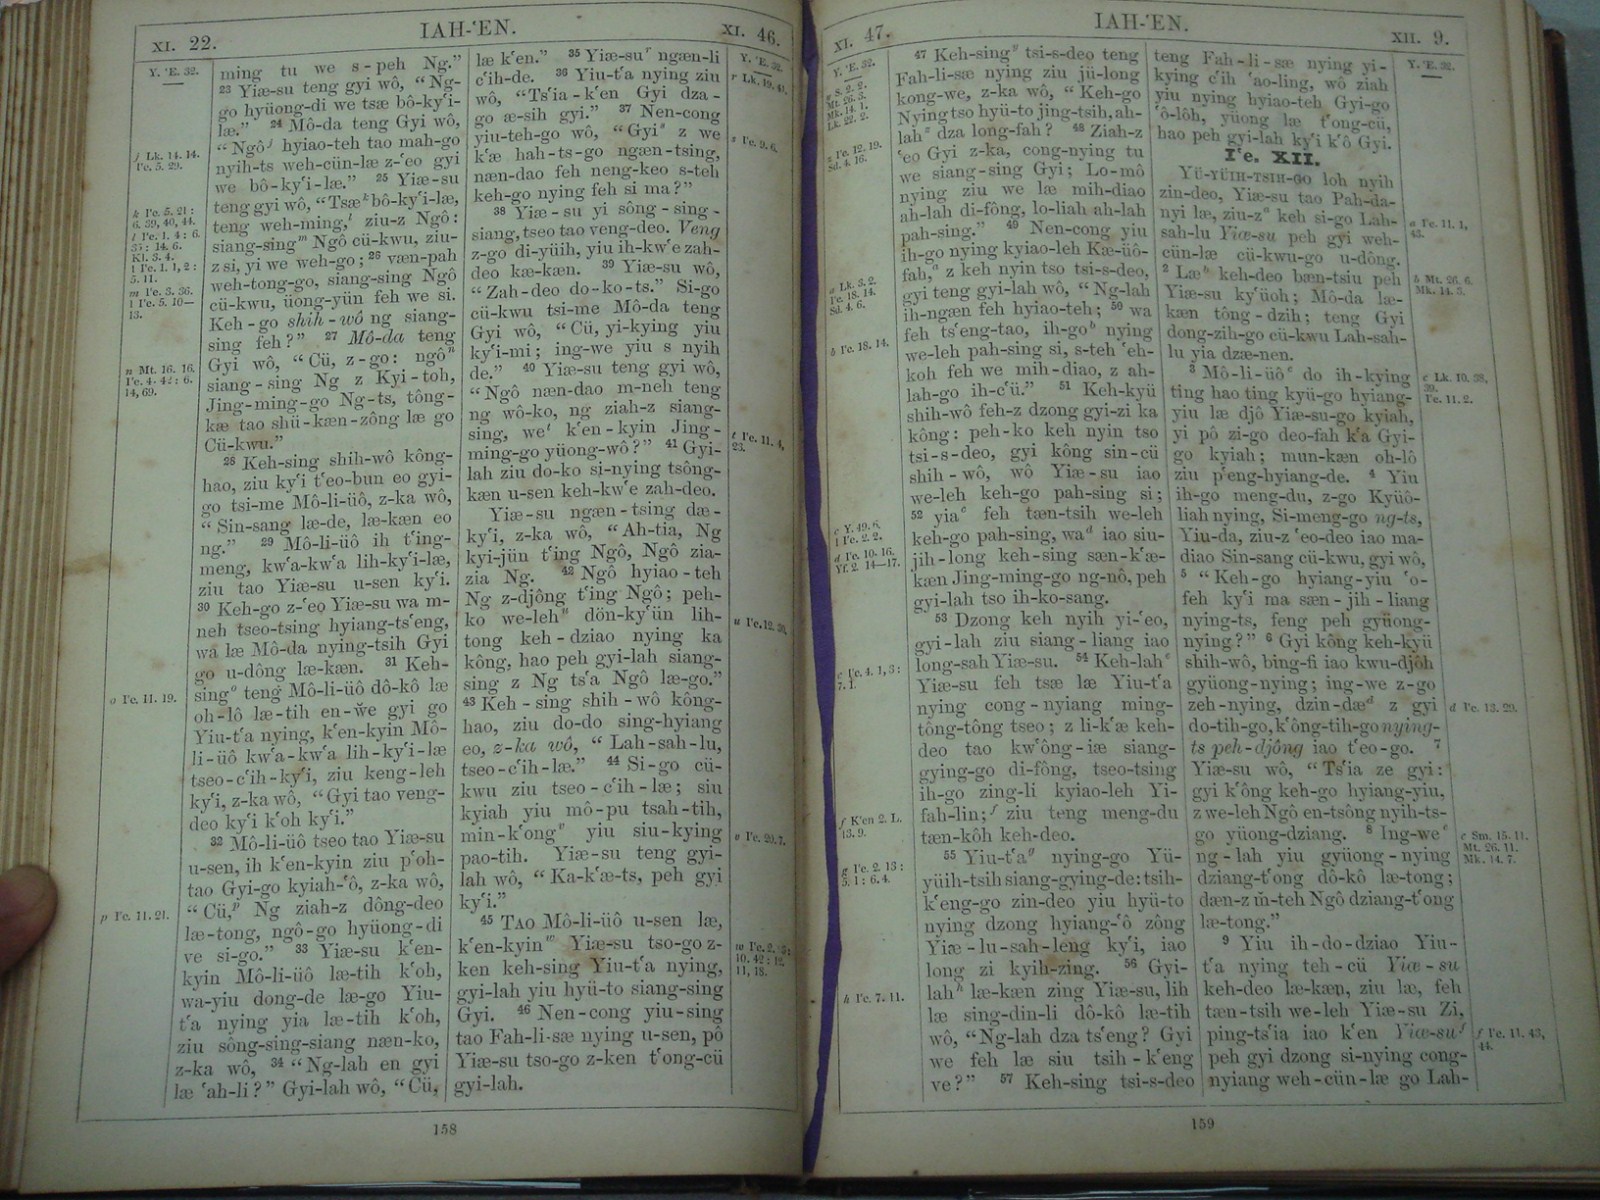 XI. 22.
IAH-ʻEN.
XI. 46.
Y. ʻE. 32.
j Lk. 14. 14.
Iʻe. 5. 29.
k Iʻe. 5. 21:
6. 39, 40, 44.
l Iʻe. 1. 4: 6.
35: 14. 6.
Kl. 3. 4.
1 Iʻe. 1. 1, 2:
5. 11.
m Iʻe. 3. 36.
1 Iʻe. 5. 10—
13.
n Mt. 16. 16.
Iʻe. 4. 42: 6.
14, 69.
o Iʻe. 11. 19.
p Iʻe. 11. 21.
ming tu we s-peh Ng.”
23 Yiæ-su teng gyi wô, “Ng-
go hyüong-di we tsæ bô-kyʻi-
læ.” 24 Mô-da teng Gyi wô,
“Ngôj hyiao-teh tao mah-go
nyih-ts weh-cün-læ z-ʻeo gyi
we bô-kyʻi-læ.” 25 Yiæ-su
teng gyi wô, “Tsæk bô-kyʻi-læ,
teng weh-ming,l ziu-z Ngô:
siang-singm Ngô cü-kwu, ziu-
z si, yi we weh-go; 26 væn-pah
weh-tong-go, siang-sing Ngô
cü-kwu, üong-yün feh we si.
Keh-go shih-wô ng siang-
sing feh?” 27 Mô-da teng
Gyi wô, “Cü, z-go: ngôn
siang-sing Ng z Kyi-toh,
Jing-ming-go Ng-ts, tông-
kæ tao shü-kæn-zông læ go
Cü-kwu.”
28 Keh-sing shih-wô kông-
hao, ziu kyʻi tʻeo-bun eo gyi-
go tsi-me Mô-li-üô, z-ka wô,
“Sin-sang læ-de, læ-kæn eo
ng.” 29 Mô-li-üô ih tʻing-
meng, kwʻa-kwʻa lih-kyʻi-læ,
ziu tao Yiæ-su u-sen kyʻi.
30 Keh-go z-ʻeo Yiæ-su wa m-
neh tseo-tsing hyiang-tsʻeng,
wa læ Mô-da nying-tsih Gyi
go u-dông læ-kæn. 31 Keh-
singo teng Mô-li-üô dô-kô læ
oh-lô læ-tih en-we gyi go
Yiu-tʻa nying, kʻen-kyin Mô-
li-üô kwʻa-kwʻa lih-kyʻi-læ
tseo-cʻih-kyʻi, ziu keng-leh
kyʻi, z-ka wô, “Gyi tao veng-
deo kyʻi kʻoh kyʻi.”
32 Mô-li-üô tseo tao Yiæ-su
u-sen, ih kʻen-kyin ziu pʻoh-
tao Gyi-go kyiah-ʻô, z-ka wô,
“Cü,p Ng ziah-z dông-deo
læ-tong, ngô-go hyüong-di
ve si-go.” 33 Yiæ-su kʻen-
kyin Mô-li-üô læ-tih kʻoh,
wa-yiu dong-de læ-go Yiu-
tʻa nying yia læ-tih kʻoh,
ziu sông-sing-siang næn-ko,
z-ka wô, 34 “Ng-lah en gyi
læ ʻah-li?” Gyi-lah wô, “Cü,
læ kʻen.” 35 Yiæ-sur ngæn-li
cʻih-de. 36 Yiu-tʻa nying ziu
wô, “Tsʻia-kʻen Gyi dza-
go æ-sih gyi.” 37 Nen-cong
yiu-teh-go wô, “Gyis z we
kʻæ hah-ts-go ngæn-tsing,
næn-dao feh neng-keo s-teh
keh-go nying feh si ma?”
38 Yiæ-su yi sông-sing-
siang, tseo tao veng-deo. Veng
z-go di-yüih, yiu ih-kwʻe zah-
deo kæ-kæn. 39 Yiæ-su wô,
“Zah-deo do-ko-ts.” Si-go
cü-kwu tsi-me Mô-da teng
Gyi wô, “Cü, yi-kying yiu
kyʻi-mi; ing-we yiu s nyih
de.” 40 Yiæ-su teng gyi wô,
“Ngô næn-dao m-neh teng
ng wô-ko, ng ziah-z siang-
sing, wet kʻen-kyin Jing-
ming-go yüong-wô?” 41 Gyi-
lah ziu do-ko si-nying tsông-
kæn u-sen keh-kwʻe zah-deo.
Yiæ-su ngæn-tsing dæ-
kyʻi, z-ka wô, “Ah-tia, Ng
kyi-jün tʻing Ngô, Ngô zia-
zia Ng. 42 Ngô hyiao-teh
Ng z-djông tʻing Ngô; peh-
ko we-lehu dön-kyʻün lih-
tong keh-dziao nying ka
kông, hao peh gyi-lah siang-
sing z Ng tsʻa Ngô læ-go.”
43 Keh-sing shih-wô kông-
hao, ziu do-do sing-hyiang
eo, z-ka wô, “Lah-sah-lu,
tseo-cʻih-læ.” 44 Si-go cü-
kwu ziu tseo-cʻih-læ; siu
kyiah yiu mô-pu tsah-tih,
min-kʻongv yiu siu-kying
pao-tih. Yiæ-su teng gyi-
lah wô, “Ka-kʻæ-ts, peh gyi
kyʻi.”
45 Tao Mô-li-üô u-sen læ,
kʻen-kyinw Yiæ-su tso-go z-
ken keh-sing Yiu-tʻa nying,
gyi-lah yiu hyü-to siang-sing
Gyi. 46 Nen-cong yiu-sing
tao Fah-li-sæ nying u-sen, pô
Yiæ-su tso-go z-ken tʻong-cü
gyi-lah.
Y. ʻE. 32.
r Lk. 19. 41.
s Iʻe. 9. 6.
t Iʻe. 11. 4,
23.
u Iʻe. 12. 30.
v Iʻe. 20. 7.
w Iʻe. 2.
10. 42: 12.
11, 18.
158
XI. 47.
IAH-ʻEN.
XII. 9.
Y. ʻE. 32.
y S. 2. 2.
Mt. 26. 3.
Mk. 14. 1.
Lk. 22. 2.
z Iʻe. 12. 19.
Sd. 4. 16.
a Lk. 3. 2.
Iʻe. 18. 14.
Sd. 4. 6.
b Iʻe. 18. 14.
c Y. 49. 6.
1 Iʻe. 2. 2.
d Iʻe. 10. 16.
Yf. 2. 14—17.
e Iʻe. 4. 1, 3:
7. 1.
f Kʻen 2. L.
13. 9.
g Iʻe. 2. 13:
5. 1: 6. 4.
h Iʻe. 7. 11.
47 Keh-singy tsi-s-deo teng
Fah-li-sæ nying ziu jü-long
kong-we, z-ka wô, “Keh-go
Nying tso hyü-to jing-tsih, ah-
lahz dza long-fah? 48 Ziah-z
ʻeo Gyi z-ka, cong-nying tu
we siang-sing Gyi; Lo-mô
nying ziu we læ mih-diao
ah-lah di-fông, lo-liah ah-lah
pah-sing.” 49 Nen-cong yiu
ih-go nying kyiao-leh Kæ-üô-
fah,a z keh nyin tso tsi-s-deo,
gyi teng gyi-lah wô, “Ng-lah
ih-ngæn feh hyiao-teh; 50 wa
feh tsʻeng-tao, ih-gob nying
we-leh pah-sing si, s-teh ʻeh-
koh feh we mih-diao, z ah-
lah-go ih-cʻü.” 51 Keh-kyü
shih-wô feh-z dzong gyi-zi ka
kông: peh-ko keh nyin tso
tsi-s-deo, gyi kông sin-cü
shih-wô, wô Yiæ-su iao
we-leh keh-go pah-sing si;
52 yiac feh tæn-tsih we-leh
keh-go pah-sing, wad iao siu-
jih-long keh-sing sæn-kʻæ-
kæn Jing-ming-go ng-nô, peh
gyi-lah tso ih-ko-sang.
53 Dzong keh nyih yi-ʻeo,
gyi-lah ziu siang-liang iao
long-sah Yiæ-su. 54 Keh-lahe
Yiæ-su feh tsæ læ Yiu-tʻa
nying cong-nyiang ming-
tông-tông tseo; z li-kʻæ keh-
deo tao kwʻông-iæ siang-
gying-go di-fông, tseo-tsing
ih-go zing-li kyiao-leh Yi-
fah-lin;f ziu teng meng-du
tæn-kôh keh-deo.
55 Yiu-tʻag nying-go Yü-
yüih-tsih siang-gying-de: tsih-
kʻeng-go zin-deo yiu hyü-to
nying dzong hyiang-ʻô zông
Yiæ-lu-sah-leng kyʻi, iao
long zi kyih-zing. 56 Gyi-
lahh læ-kæn zing Yiæ-su, lih
læ sing-din-li dô-kô læ-tih
wô, “Ng-lah dza tsʻeng? Gyi
we feh læ siu tsih-kʻeng
ve?” 57 Keh-sing tsi-s-deo
teng Fah-li-sæ nying yi-
kying cʻih ʻao-ling, wô ziah
yiu nying hyiao-teh Gyi-go
ʻô-lôh, yüong læ tʻong-cü,
hao peh gyi-lah kyʻi kʻô Gyi.
Iʻe. XII.
YÜ-YÜIH-TSIH-GO loh nyih
zin-deo, Yiæ-su tao Pah-da-
nyi læ, ziu-za keh si-go Lah-
sah-lu Yiæ-su peh gyi weh-
cün-læ cü-kwu-go u-dông.
2 Læb keh-deo bæn-tsiu peh
Yiæ-su kyʻüoh; Mô-da læ-
kæn tông-dzih; teng Gyi
dong-zih-go cü-kwu Lah-sah-
lu yia dzæ-nen.
3 Mô-li-üôc do ih-kying
ting hao ting kyü-go hyiang-
yiu læ djô Yiæ-su-go kyiah,
yi pô zi-go deo-fah kʻa Gyi-
go kyiah; mun-kæn oh-lô
ziu pʻeng-hyiang-de. 4 Yiu
ih-go meng-du, z-go Kyüô-
liah nying, Si-meng-go ng-ts,
Yiu-da, ziu-z ʻeo-deo iao ma-
diao Sin-sang cü-kwu, gyi wô,
5 “Keh-go hyiang-yiu ʻo-
feh kyʻi ma sæn-jih-liang
nying-ts, feng peh gyüong-
nying?” 6 Gyi kông keh-kyü
shih-wô, bing-fi iao kwu-djôh
gyüong-nying; ing-we z-go
zeh-nying, dzin-dæd z gyi
do-tih-go, kʻông-tih-go nying-
ts peh-djông iao tʻeo-go. 7
Yiæ-su wô, “Tsʻia ze gyi:
gyi kʻông keh-go hyiang-yiu,
z we-leh Ngô en-tsông nyih-ts-
go yüong-dziang. 8 Ing-wee
ng-lah yiu gyüong-nying
dziang-tʻong dô-kô læ-tong;
dæn-z m-teh Ngô dziang-tʻong
læ-tong.”
9 Yiu ih-do-dziao Yiu-
tʻa nying teh-cü Yiæ-su
keh-deo læ-kæn, ziu læ, feh
tæn-tsih we-leh Yiæ-su Zi,
ping-tsʻia iao kʻen Yiæ-suf
peh gyi dzong si-nying cong-
nyiang weh-cün-læ go Lah-
Y. ʻE. 32.
a Iʻe. 11. 1,
43.
b Mt. 26. 6.
Mk. 14. 3.
c Lk. 10. 38,
39.
Iʻe. 11. 2.
d Iʻe. 13. 29.
e Sm. 15. 11.
Mt. 26. 11.
Mk. 14. 7.
f Iʻe. 11. 43,
44.
159